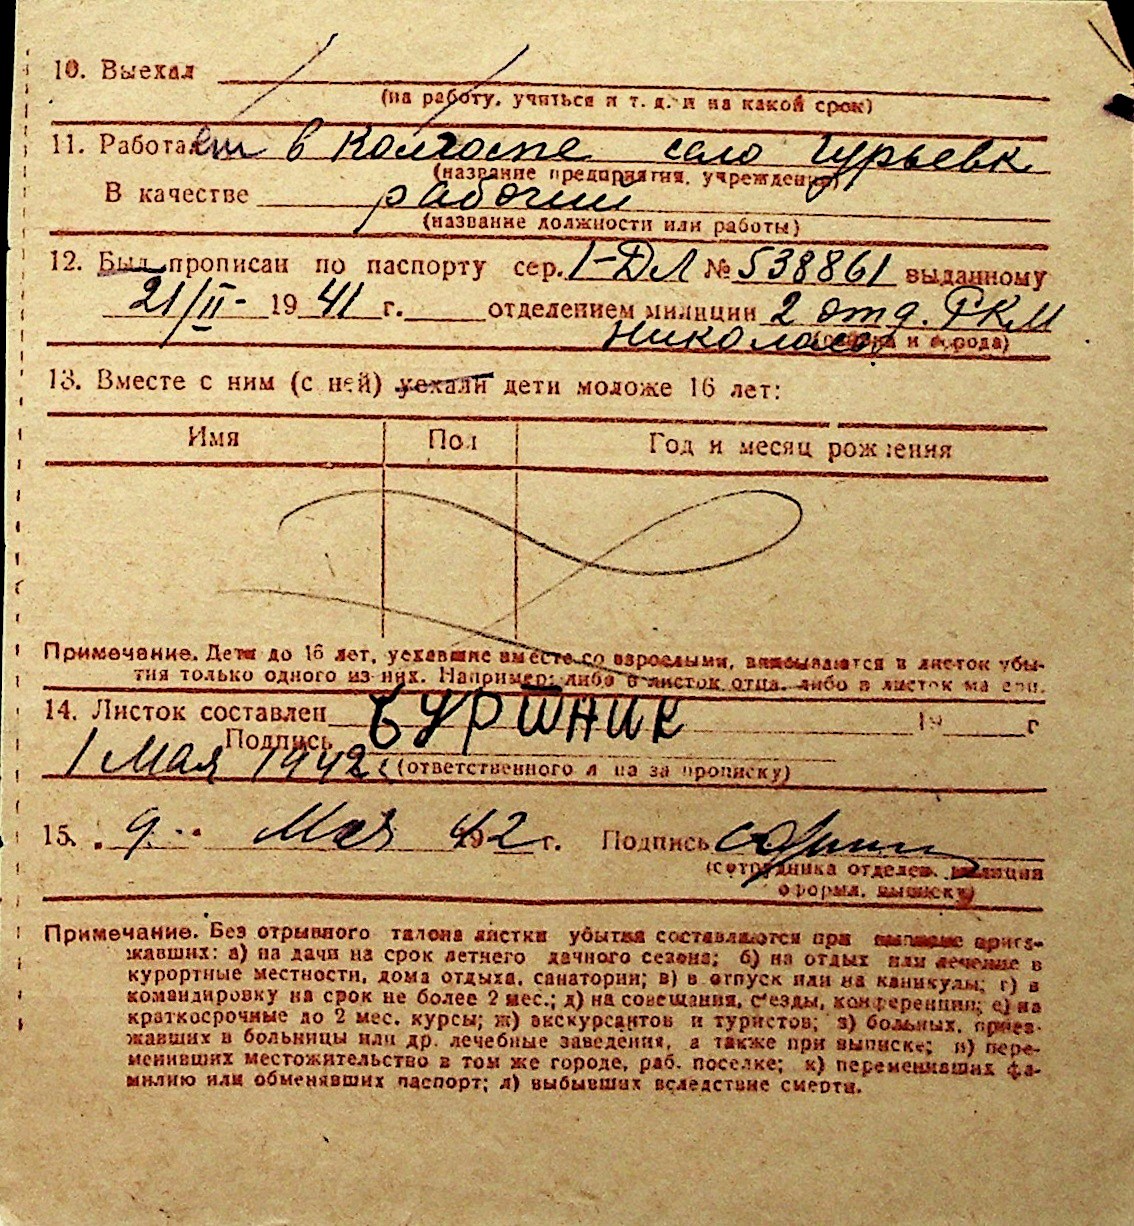 10. Выехал
(на работу, учиться и т. д. и на какой срок)
11. Работает в Колхозе село Гурьевк
(название предприятия, учреждения)
В качестве рабочий
(название должности или работы)
12. Был прописан по паспорту сер. I-ДЛ № 538861 выданному
21/II- 1941 г. отделением милиции 2 отд. РКМ
Николаев
(района и города)
13. Вместе с ним (с ней) уехали дети моложе 16 лет:
Имя Пол Год и месяц рождения
Примечание. Дети до 16 лет, уехавшие вместе со взрослыми, вписываются в листок убы-
тия только одного из них. Например: либо в листок отца, либо в листок матери.
14. Листок составлен 19 г
Подпись Буршник
1 Мая 1942 г (ответственного лица за прописку)
15. 9 Мая 1942 г. Подпись
(сотрудника отделен. милиции
оформл. выписку)
Примечание. Без отрывного талона листки убытия составляются при выписке приез-
жавших: а) на дачи на срок летнего дачного сезона; б) на отдых или лечение в
курортные местности, дома отдыха, санатории; в) в отпуск или на каникулы; г) в
командировку на срок не более 2 мес.; д) на совещания, съезды, конференции; е) на
краткосрочные до 2 мес. курсы; ж) экскурсантов и туристов; з) больных, приез-
жавших в больницы или др. лечебные заведения, а также при выписке; и) пере-
менивших местожительство в том же городе, раб. поселке; к) переменивших фа-
милию или обменявших паспорт; л) выбывших вследствие смерти.